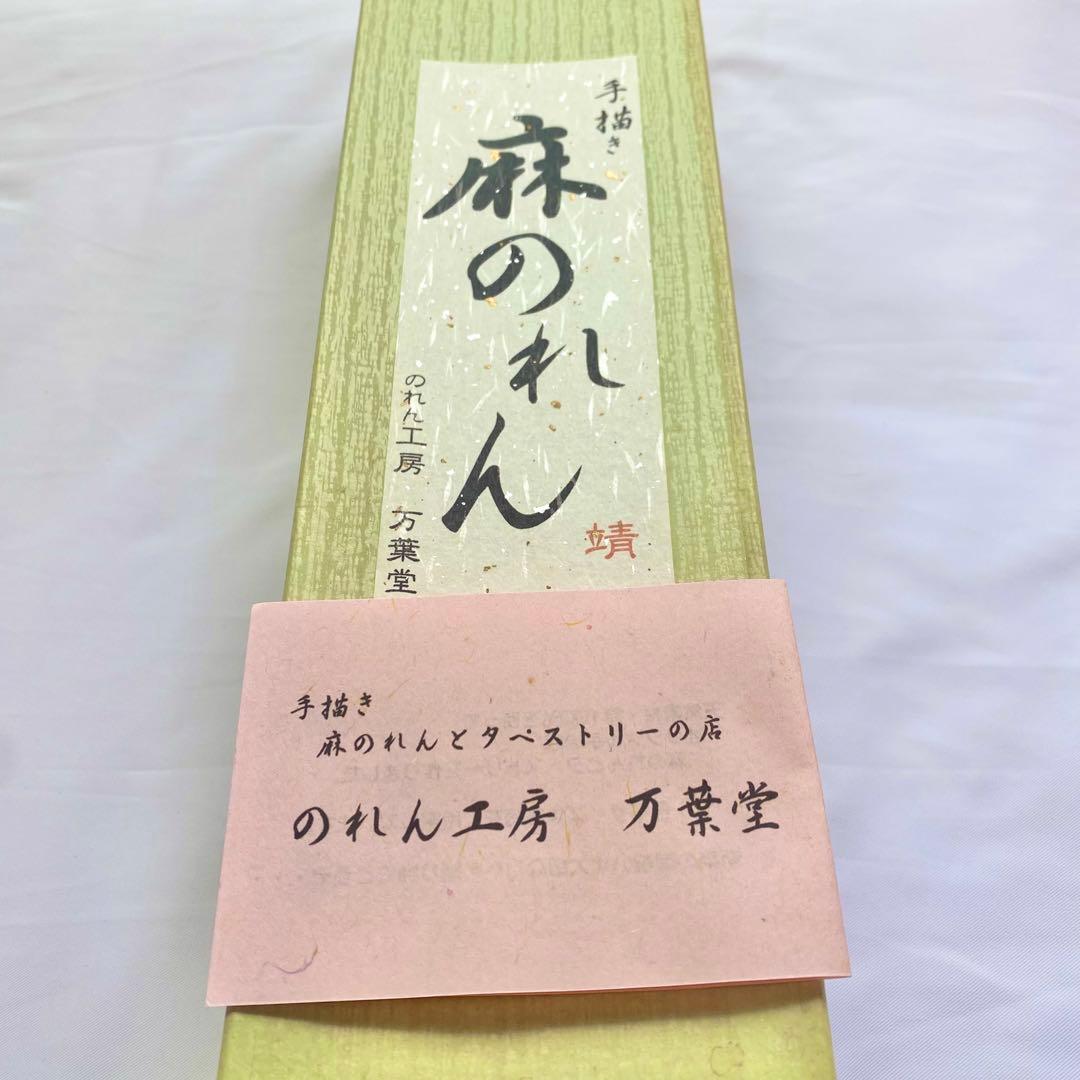 手描き
麻のれん
靖
のれん工房 万葉堂
手描き
麻のれんとタペストリーの店
のれん工房 万葉堂